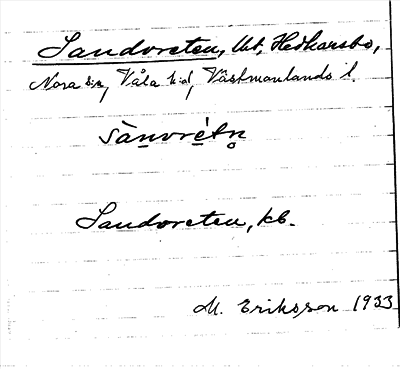 Sandvreten, lht, Hedkarsbo,
Nora sn, Våla hd, Västmanlands l.
sànvrétn̥
Sandvreten, kb.
M. Eriksson 1933